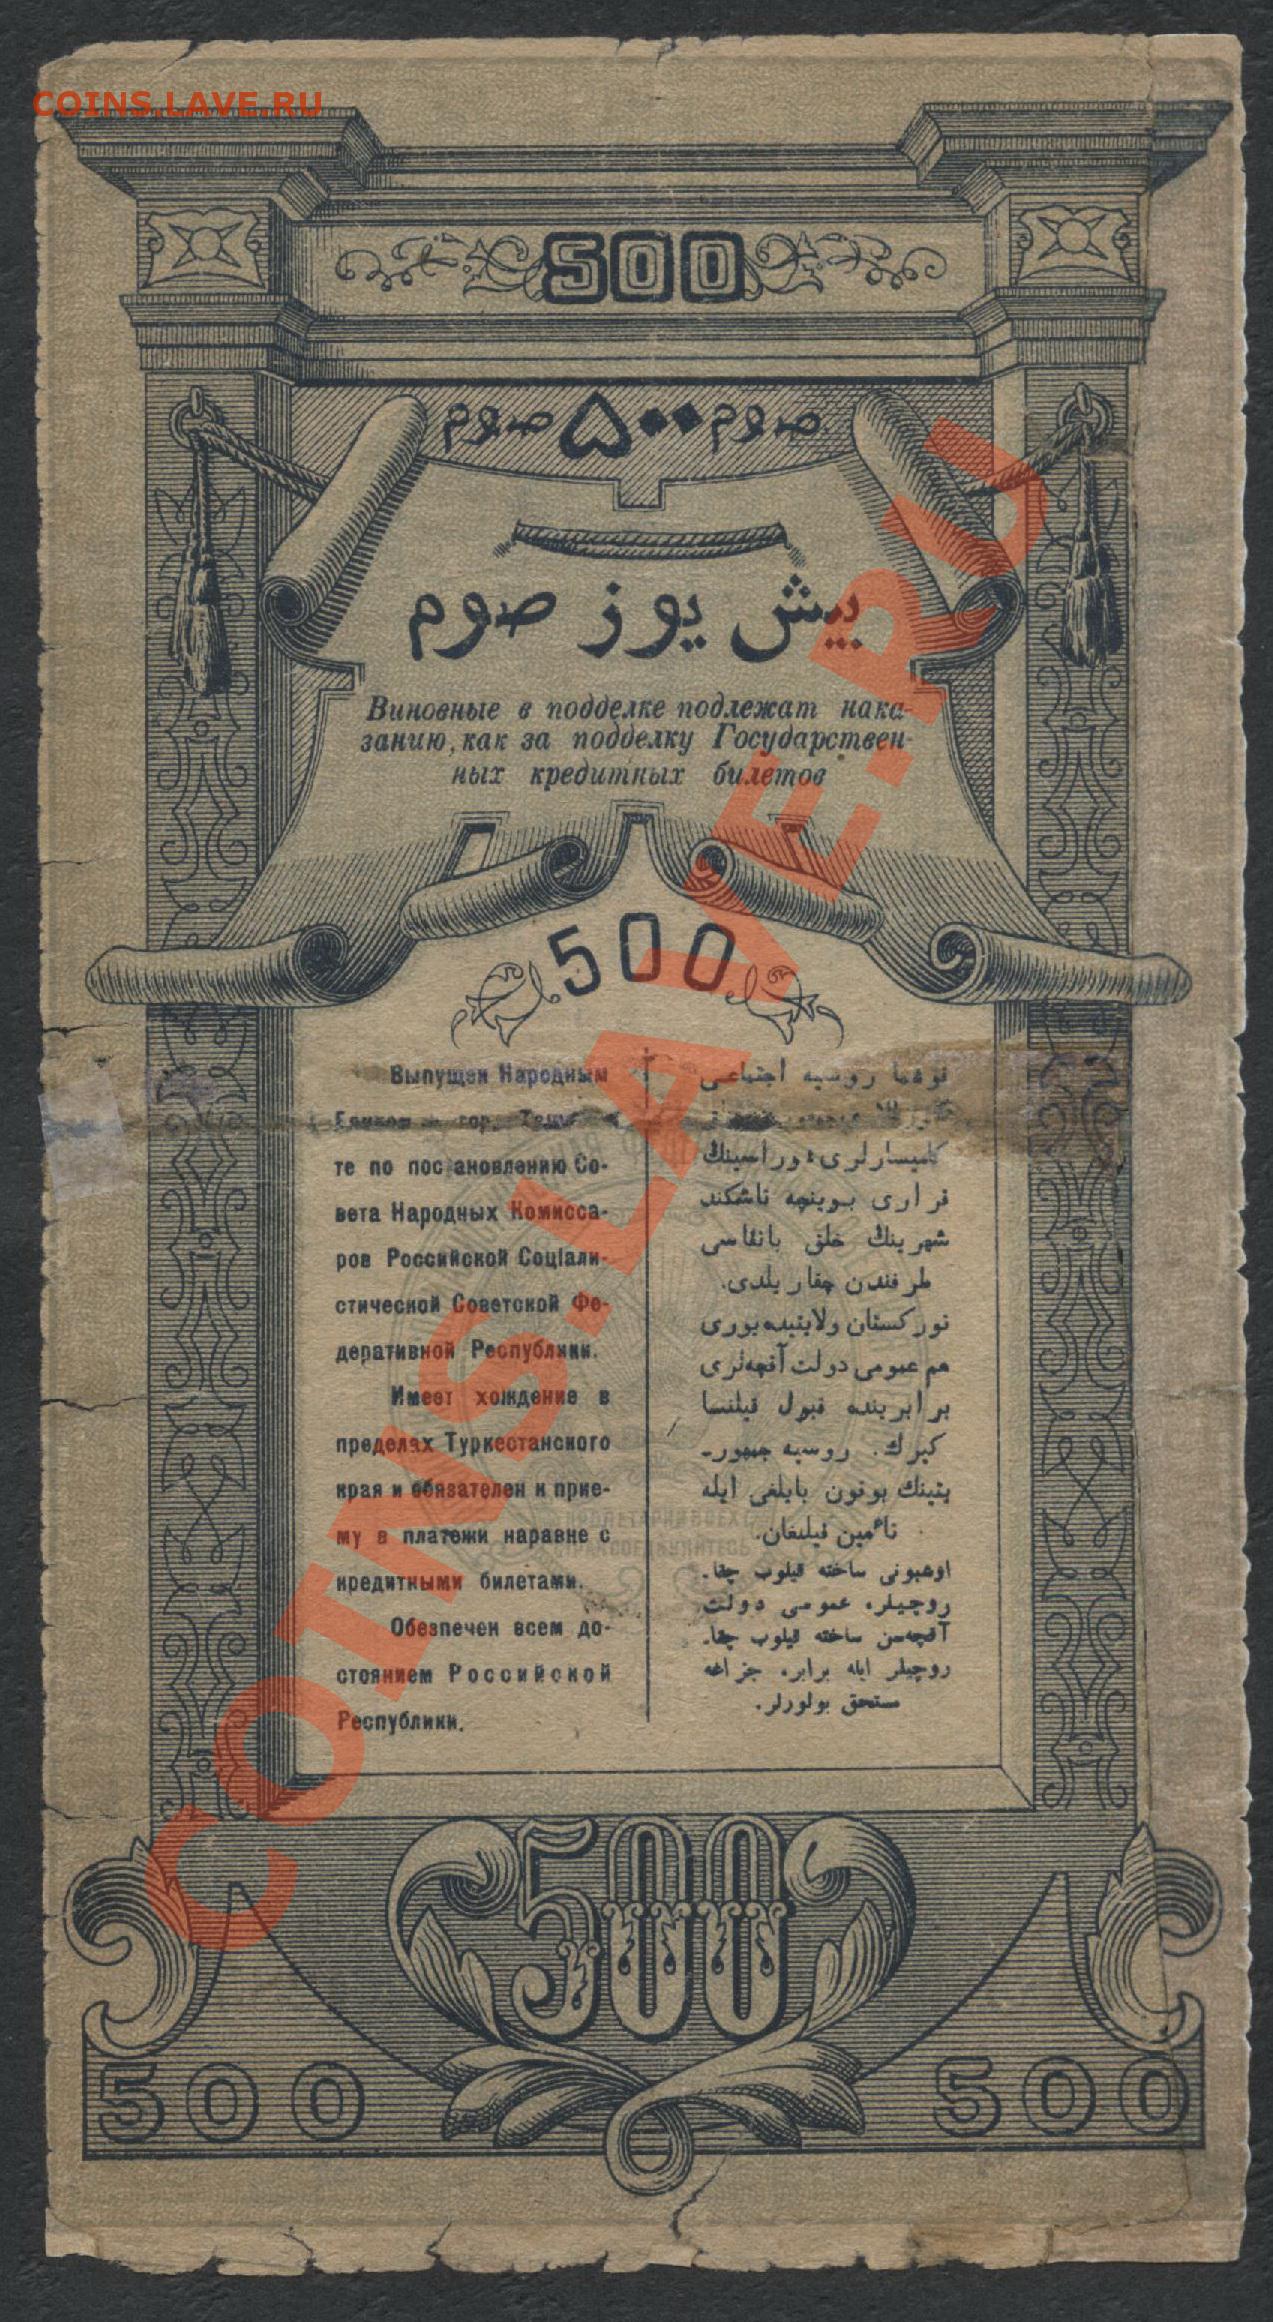 COINS.LAVE.RU
500
صوم ۵۰۰ صوم
بيش يوز صوم
Виновные в подделке подлежат нака-
занию, как за подделку Государствен-
ных кредитных билетов
500
Выпущен Народным
гор.
те по постановлению Со-
вета Народных Комисса-
ров Российской Соціали-
стической Советской Фе-
деративной Республики.
Имеет хождение в
пределах Туркестанского
края и обязателен к прие-
му в платежи наравне с
кредитными билетами.
Обезпечен всем до-
стоянием Российской
Республики.
روسيه اجتماعی
قراری بوينچه تاشكند
شهرينڭ خلق بانقاسی
طرفندن چقاريلدی.
توركستان ولايتيده يوری
هم عمومی دولت آقچه‌لری
برابرينده قبول قيلنسا
كيرك. روسيه جمهور-
يتينڭ بوتون بايلغی ايله
تأمين قيلنغان.
اوشبونی ساخته قيلوب چقا-
روچيلره عمومی دولت
آقچه‌سن ساخته قيلوب چقا-
روچيلر ايله برابر جزاغه
مستحق بولورلر.
500
500 500
COINS.LAVE.RU